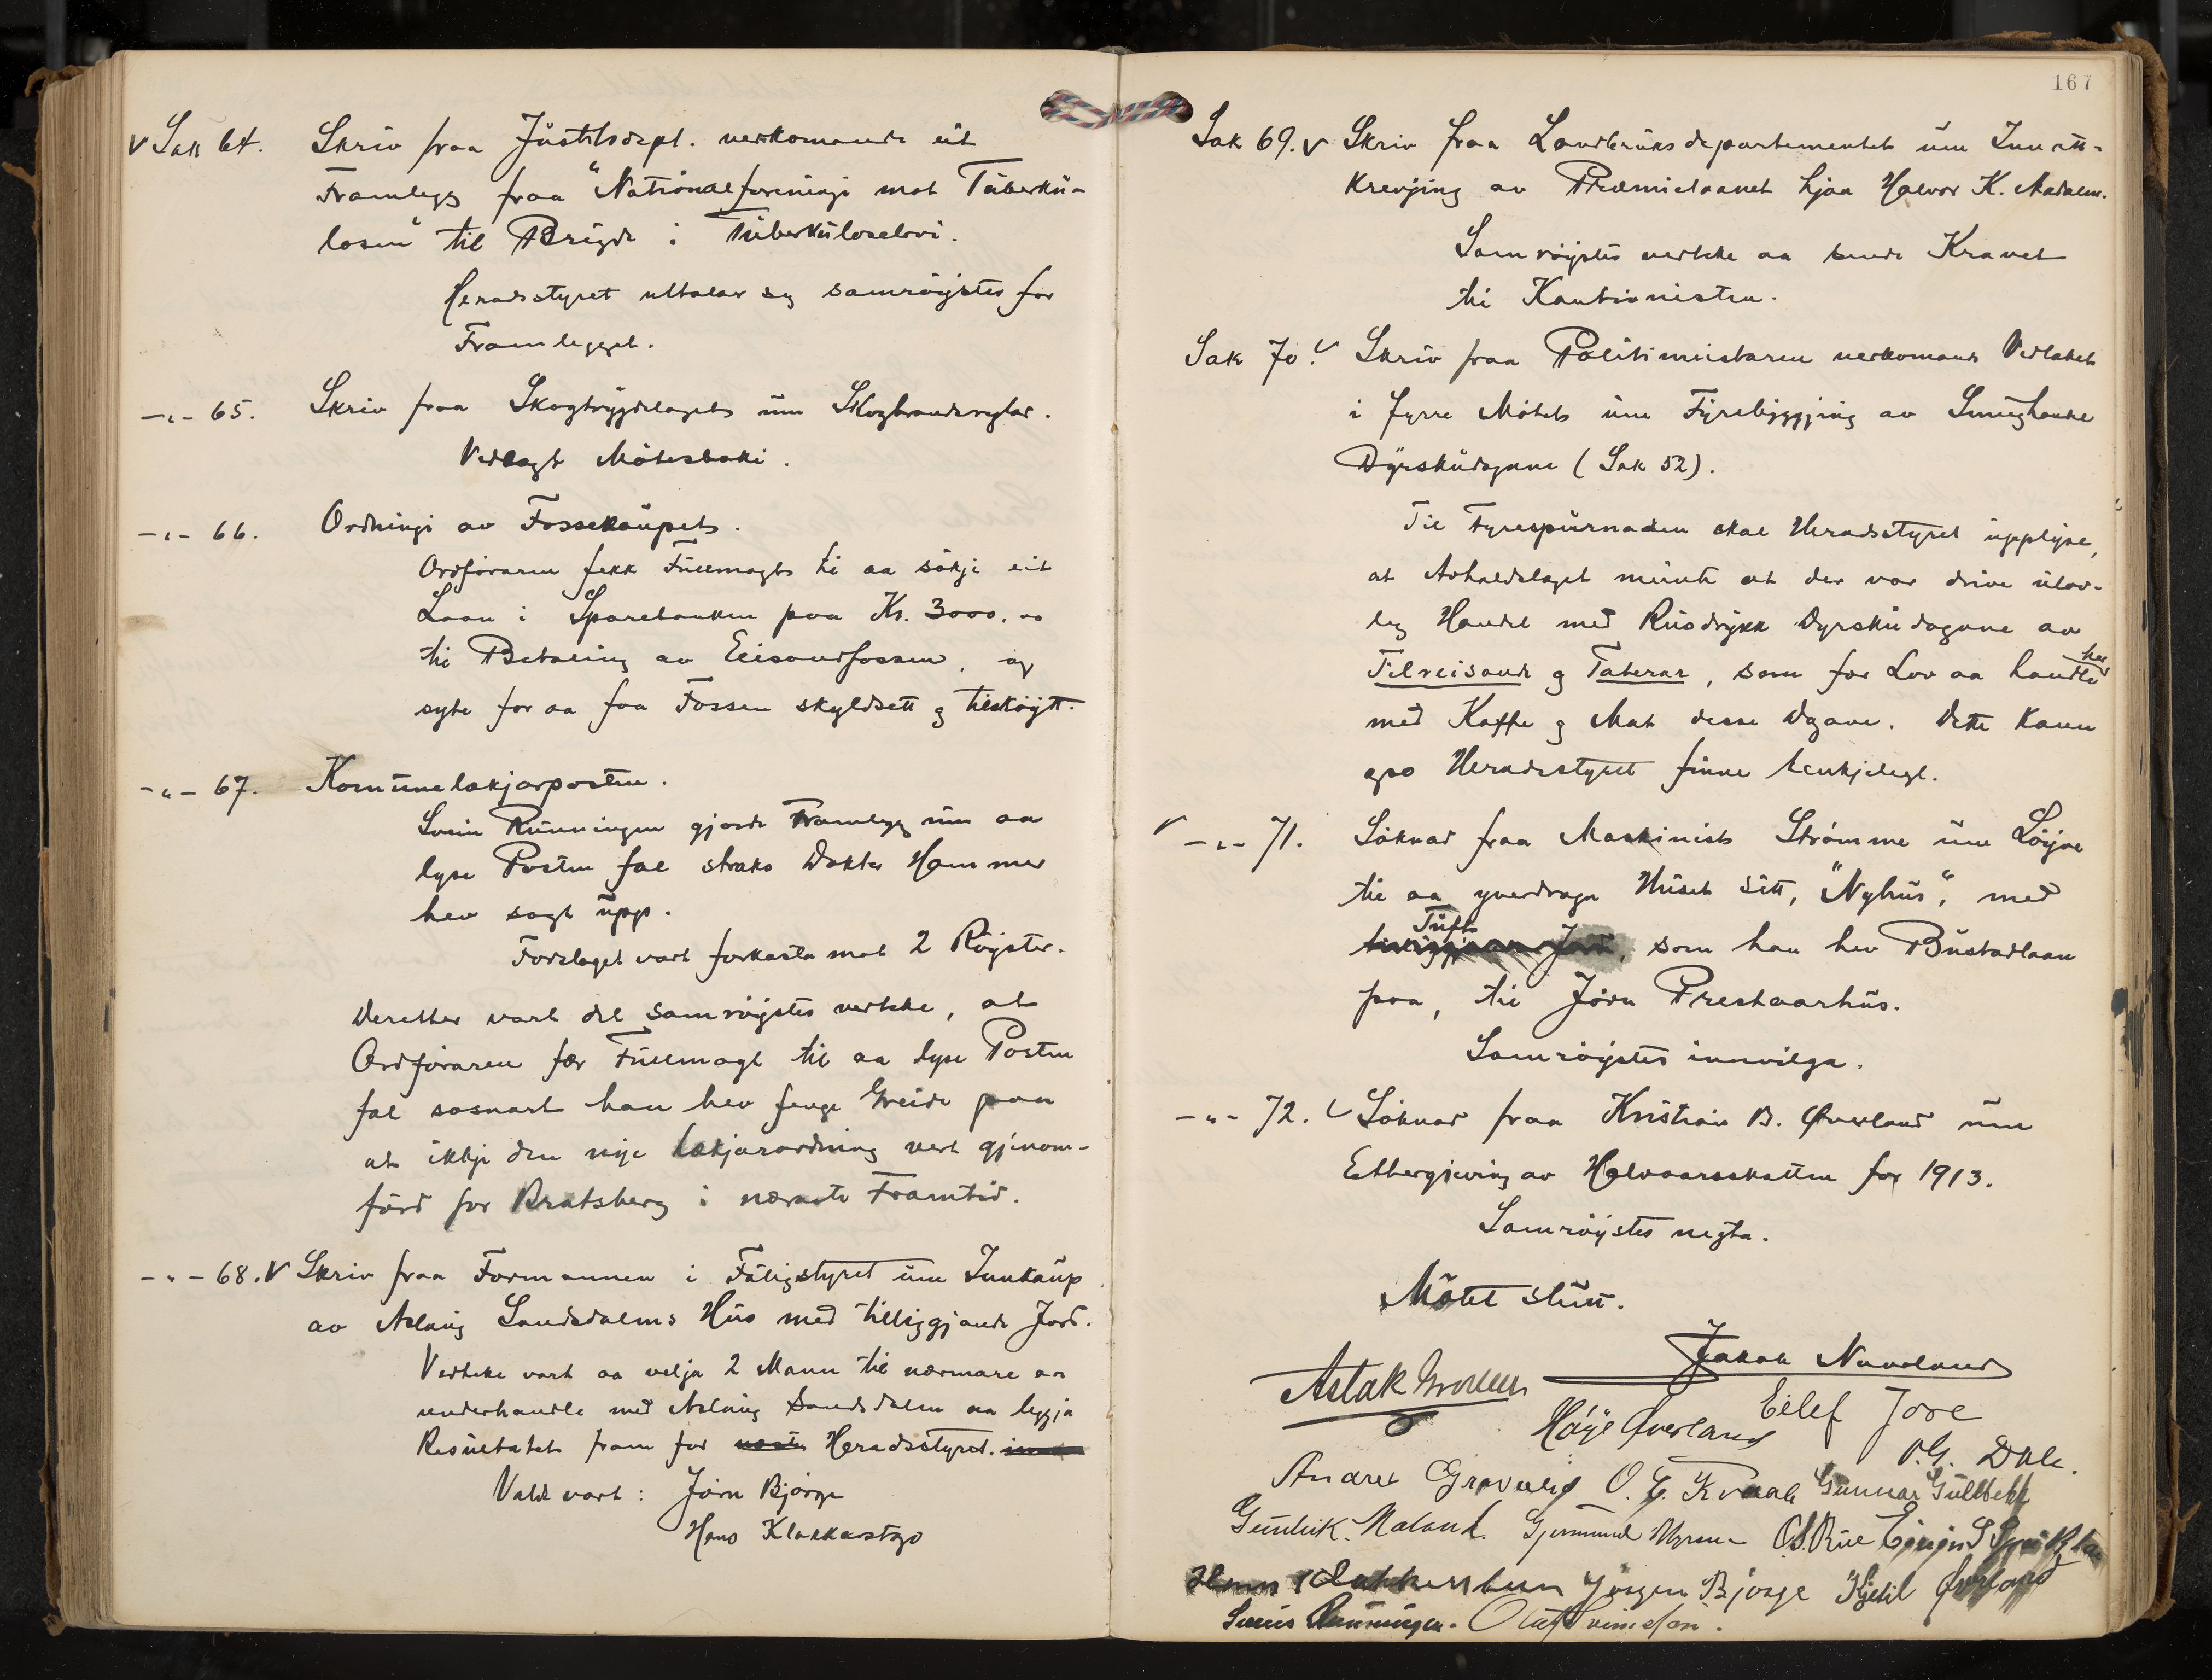 V Sak 64. Skriv fraa Justitsdept. verkomande eit
Framlegg fraa "Nationalforeningi mot Tuberku-
losen" til Brigde i Tuberkuloselovi.
Heradsstyret uttalar seg samröystes for
Framlegget.
-"- 65. Skriv fraa Skogtrygdelaget um Skogbrandreglar.
Vedlagt Mötesboki.
-"- 66. Ordningi av Fossekaupet.
Ordföraren fekk Fullmagt ti aa sökje eit
Laan i Sparebanken paa Kr. 3000.00
ti Betaling av Eeisandfossen, og
syte for aa faa Fossen skyldsett og tilsköytt.
-"- 67. Komunelækjarposten.
Svein Runningen gjorde Framlegg um aa
lyse Posten fal straks Dokter Hammer
hev sagt upp.
Forslaget vart forkasta mot 2 Röyster.
Deretter vart det samröystes vertcke, at
Ordföraren fær Fullmagt til aa lyse Posten
fal sosnart han hev fenge Greide paa
at ikkje den nye lækjarordning vert gjenom-
förd for Bratsberg i næraste Framtid.
-"- 68. V Skriv fraa Formannen i Fatigstyret um Innkaup
av Aslaug Sandsdalens Hus med tilliggjande Jord.
Vedteke vart aa velja 2 Mann til nærmare aa
underhandle med Aslaug Sandsdalen aa leggja
Resultatet fram for næste Heradsstyret.
Valde vart: Jörn Bjørge
Hans Klakkastgo
167
Sak 69. V Skriv fraa Landbruksdepartementet um Innatt-
krevjing av Præmielaanet hjaa Halvor K. Aadalen.
Samröystes vertcke aa sende Kravet
ti Kautionisten.
Sak 70. V Skriv fraa Politimeistaren verkomande Vedtaket
i fyrre Mötet um Fyrebyggjing av Smughandel
Dyrskudagane (Sak 52).
Til Fyrespurnaden skal Heradsstyret upplyse,
at Avhaldslaget meinte at der var drive ulov-
leg Handel med Rusdrykk Dyrskudagane av
Tilreisande og Taterar, som fær Lov aa handle her
med Kaffe og Mat desse Dagane. Dette kann
ogso Heradsstyret finne tenkjelegt.
V -"- 71. Söknad fraa Maskinist Strømme um Löyve
til aa yverdraga Huset sitt, "Nyhus", med
Tuft
tilliggjande Jord, som han hev Bustadlaan
paa, til Jörn Prestaarhus.
Samröystes innvilga.
-"- 72. V Söknad fraa Kristian B. Øverland um
Ettergjeving av Halvaarsskatten for 1913.
Samröystes negta.
Mötet slutt.
Jakob Naadland
Aslak Groven
Eilef Jore
Høye Øverland
O.G. Dale.
Andres Gravalid O. G. Kvaale Gunnar Gullbekk
Gunleik Naland. Gjermund Myran O.S. Rue
Hans Klakkastuen Jörgen Bjorge Kjetil Øverland
Svein Runningen. Olaf Sveinsson.